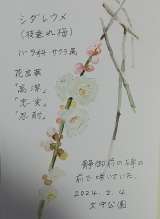 シダレウメ
(枝垂れ梅)
バラ科 サクラ属
花言葉
"高潔"
"忠実"
"忍耐"
静御前の
前で咲いていた。
2024.2.4
公園